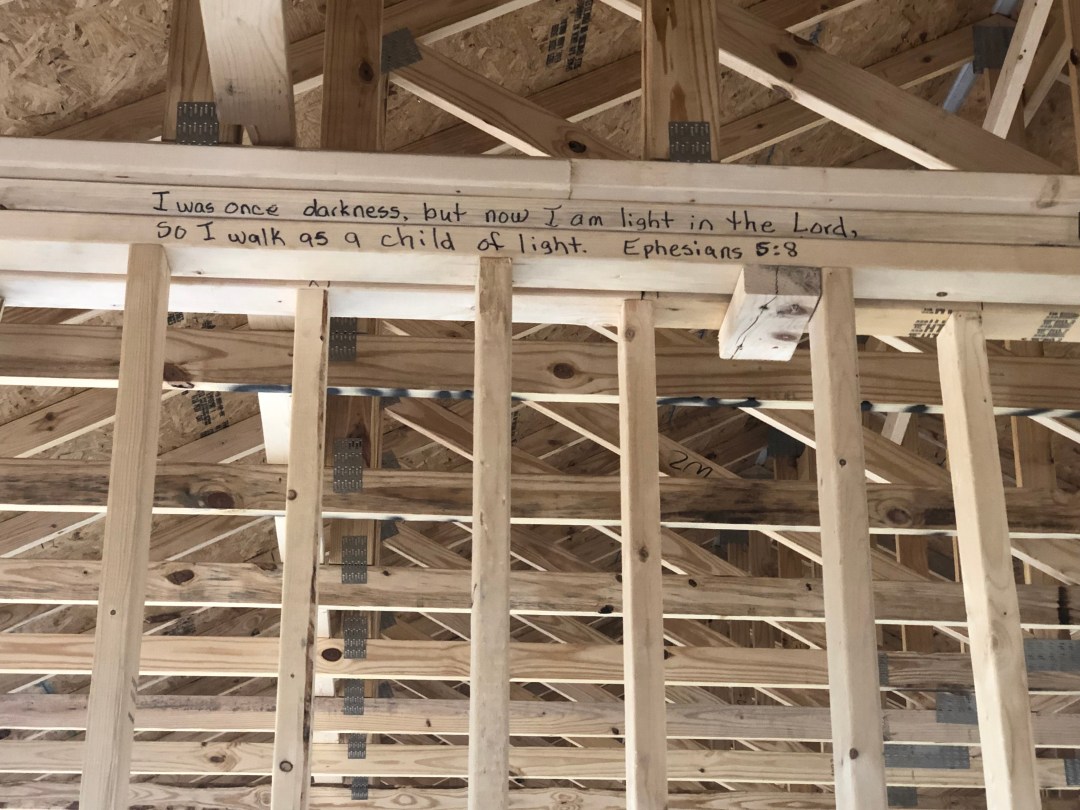 I was once darkness, but now I am light in the Lord,
So I walk as a child of light. Ephesians 5:8